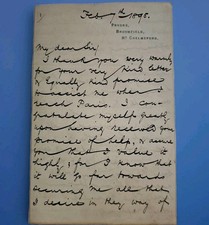 Feby 7th 1898.
Broomfield,
Nr Chelmsford.
My dear Sir
I thank you very warmly
for your very kind letter
& equally kind promise
to assist me when I
reach Paris. I con-
gratulate myself greatly
upon having received your
promise of help, & assure
you that I value it
highly; for I know that
it will go far towards
securing me all that
I desire in the way of